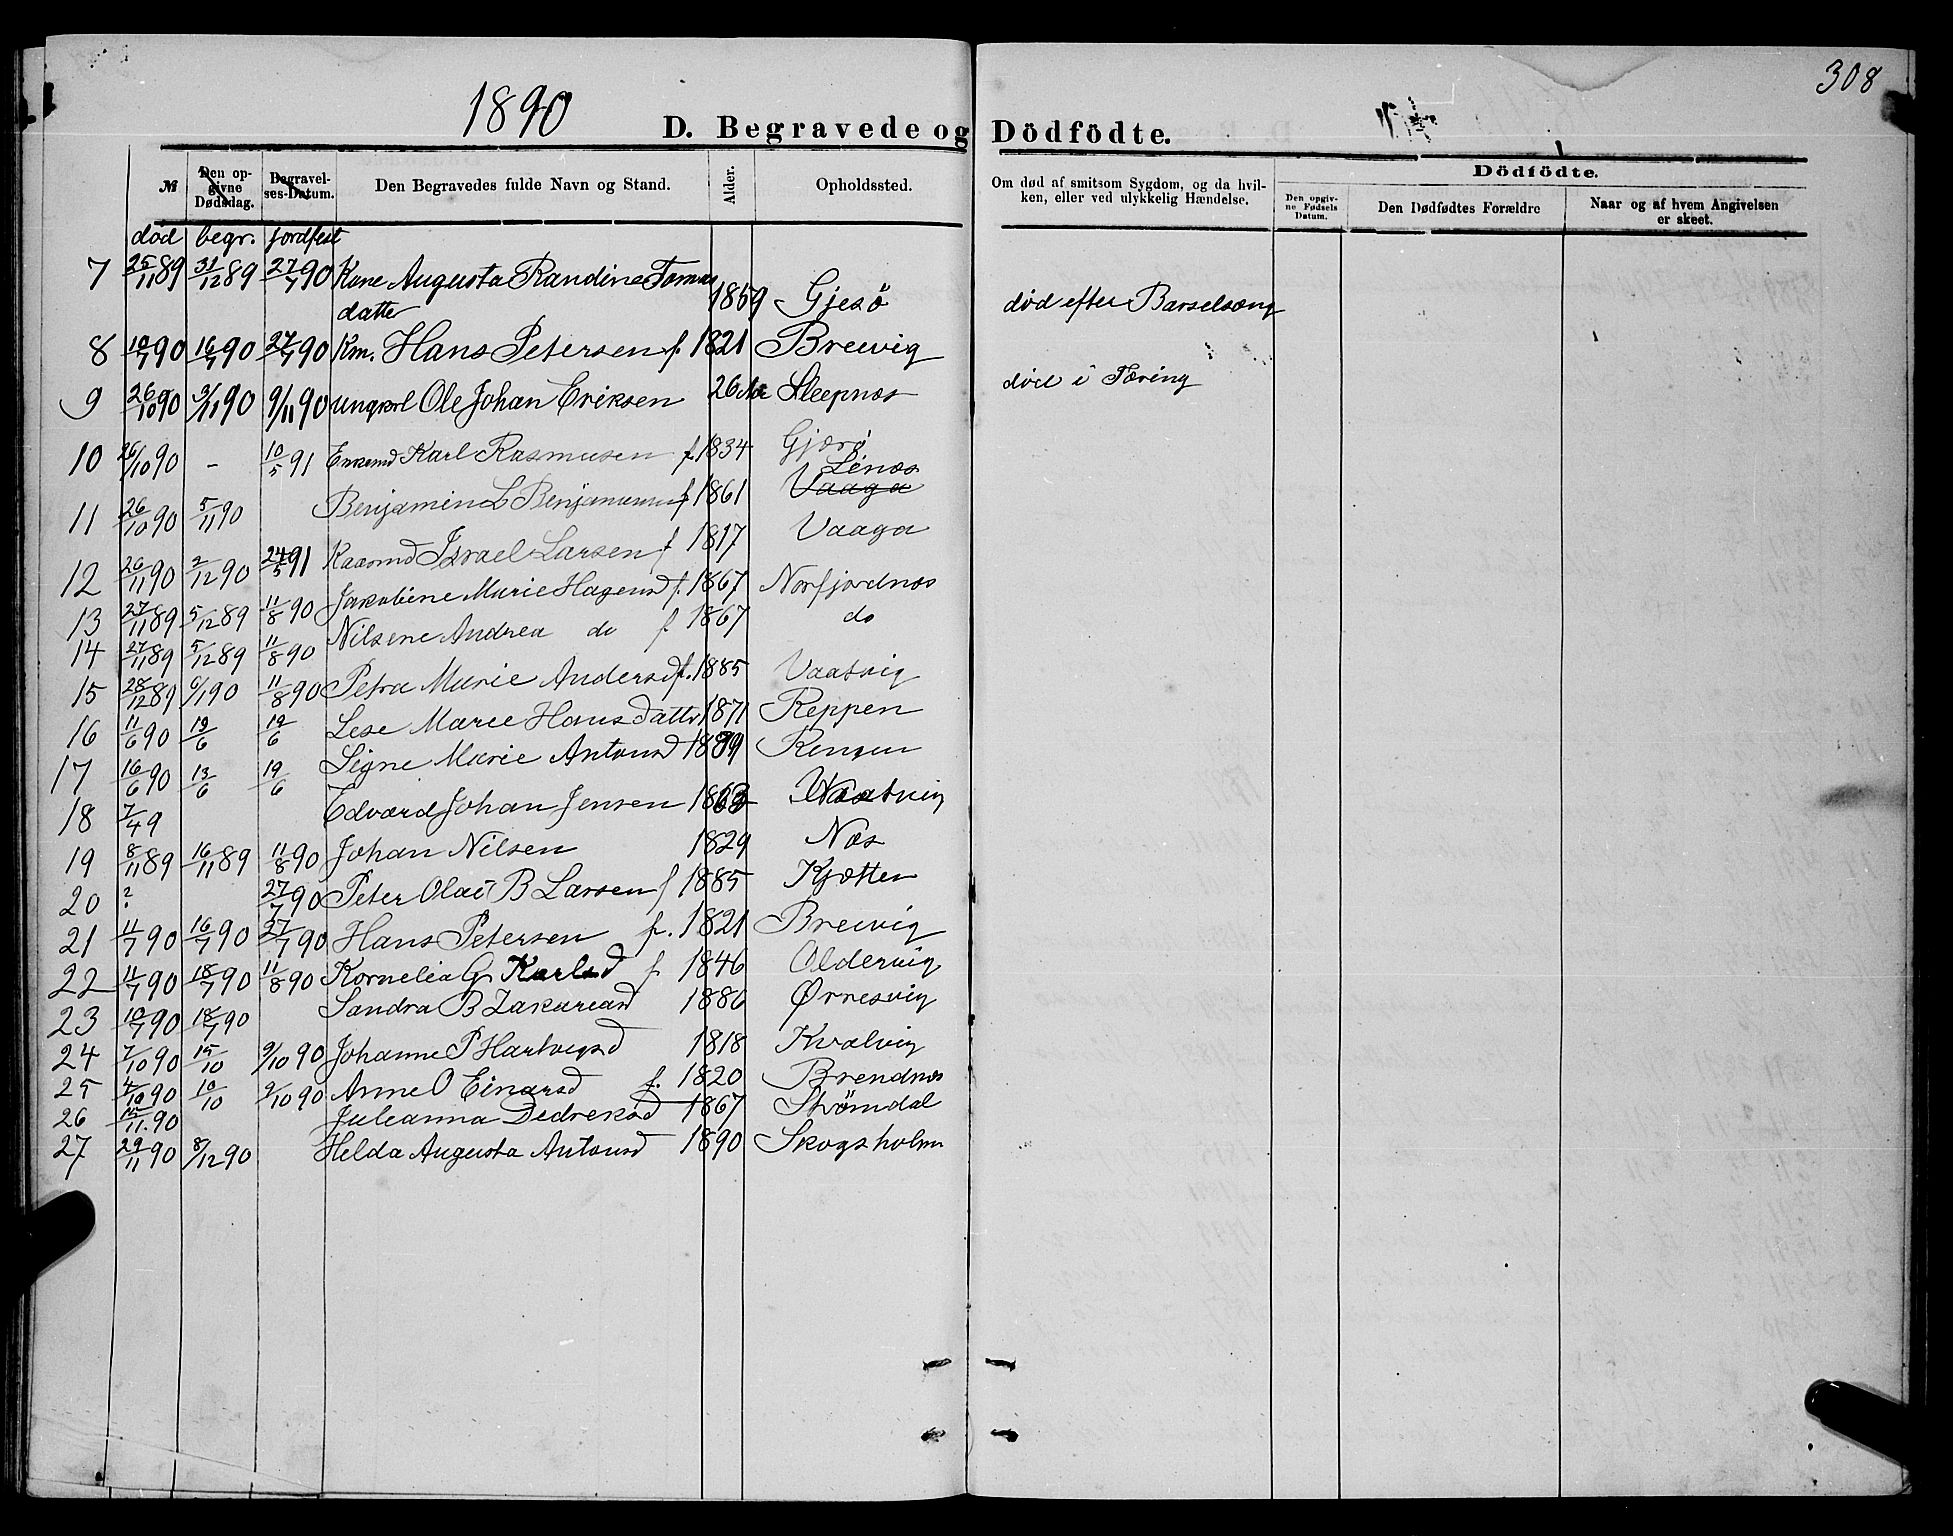 308
1890
D. Begravede og Dödfödte.
№ Den op-givne Dødsdag. Begravel-ses-Datum. Den Begravedes fulde Navn og Stand. Alder. Opholdssted. Om død af smitsom Sygdom, og da hvil-ken, eller ved ulykkelig Hændelse. Dödfödte.
Den opgiv-ne Fødsels Datum. Den Dødfødtes Forældre Naar og af hvem Angivelsen er skeet.
død begr. jordfest
7 25/11 89 31/12 89 27/7 90 Kone Augusta Randine Tomas
datter 1859 Gjesö død efter Barselseng
8 10/7 90 16/7 90 27/7 90 Km. Hans Petersen f. 1821 Breivig
9 26/10 90 3/11 90 9/11 90 ungkarl Ole Johan Eriksen 26 Aar Sleepnes død i Tæring
10 26/10 90 - 10/5 91 Enkemd Karl Rasmusen f. 1834 Gjærø
Lénæs
11 26/10 90 5/11 90 Benjamin L Benjaminsen f 1861 Vaaga
12 26/11 90 2/12 90 24/5 91 Kaarmd Israel Larsen f 1817 Vaaga
13 27/11 89 5/12 89 11/8 90 Jakobine Marie Hagensd f. 1867 Norfjordnes
14 27/11 89 5/12 89 11/8 90 Nilsine Andrea do f 1867 do
15 28/12 89 6/1 90 11/8 90 Petra Marie Andersd f. 1885 Vaatvig
16 11/6 90 19/6 19/6 Lese Marie Hansdatter 1871 Reppen
17 16/6 90 13/6 19/6 Signe Marie Antonsd 1889 Rengen
18 7/4 9 Edvard Johan Jensen 1863 Vaatvig
19 8/11 89 16/11 89 11/8 90 Johan Nilsen 1829 Næs
20 ? 27/7 90 Peter Olai B Larsen f 1885 Kjøtten
21 11/7 90 16/7 90 27/7 90 Hans Petersen f. 1821 Breivig
22 11/7 90 18/7 90 11/8 90 Kornelia G Karlsd f 1846 Oldervig
23 10/7 90 18/7 90 Sandra B Zakariasd 1886 Ørnesvig
24 7/10 90 15/10 9/10 90 Johanne P Hartvigsd 1818 Kvalvig
25 4/10 90 10/10 9/10 90 Anne O Einarsd f. 1820 Brendnes
26 15/11.90 Juleanna Dedreksd 1867 Strømdal
27 29/11 90 8/12 90 Helda Augusta Antonsd 1890 Skogsholm